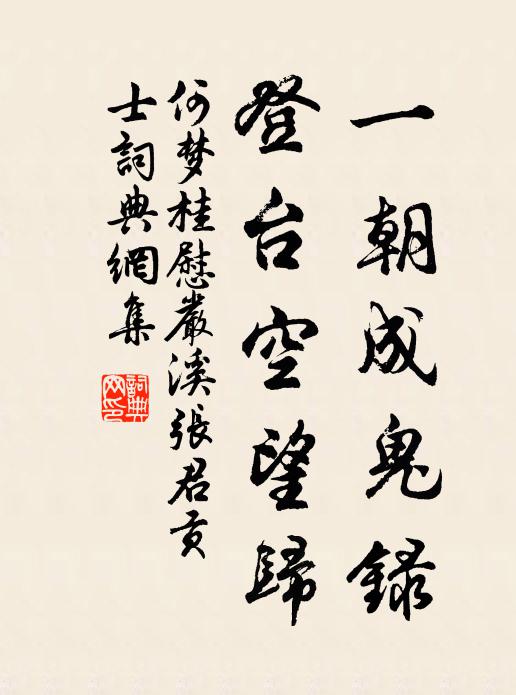 一朝成鬼録
登台空望歸
何梦桂慰嚴溪張君貢
士詞典網集
詞典
网印